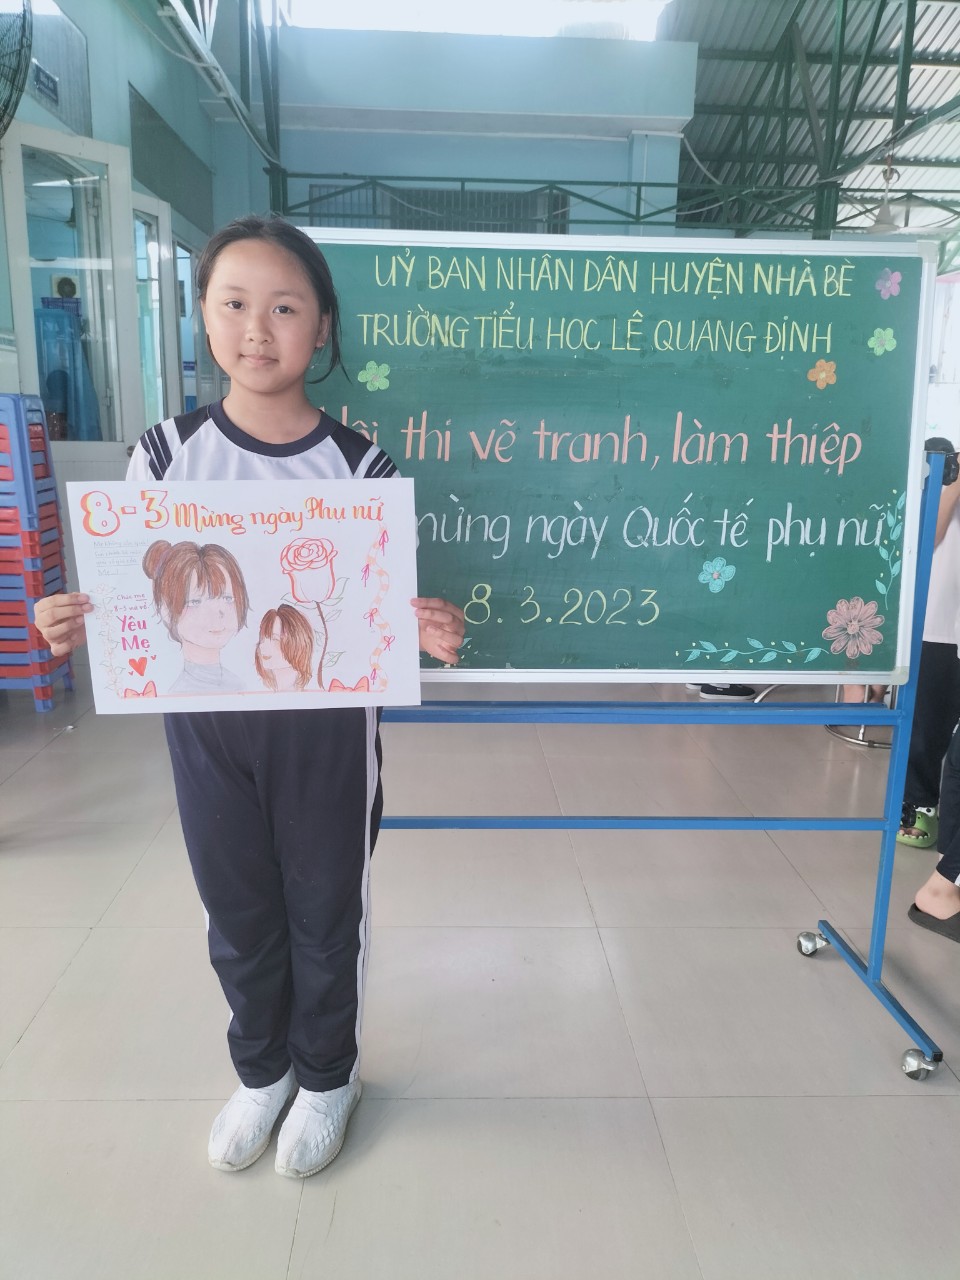 UỶ BAN NHÂN DÂN HUYỆN NHÀ BÈ
TRƯỜNG TIỂU HỌC LÊ QUANG ĐỊNH
thi vẽ tranh, làm thiệp
mừng ngày Quốc tế phụ nữ
8.3.2023
8-3 Mừng ngày Phụ nữ
Chúc mẹ
8-3 vui vẻ
Yêu
Mẹ